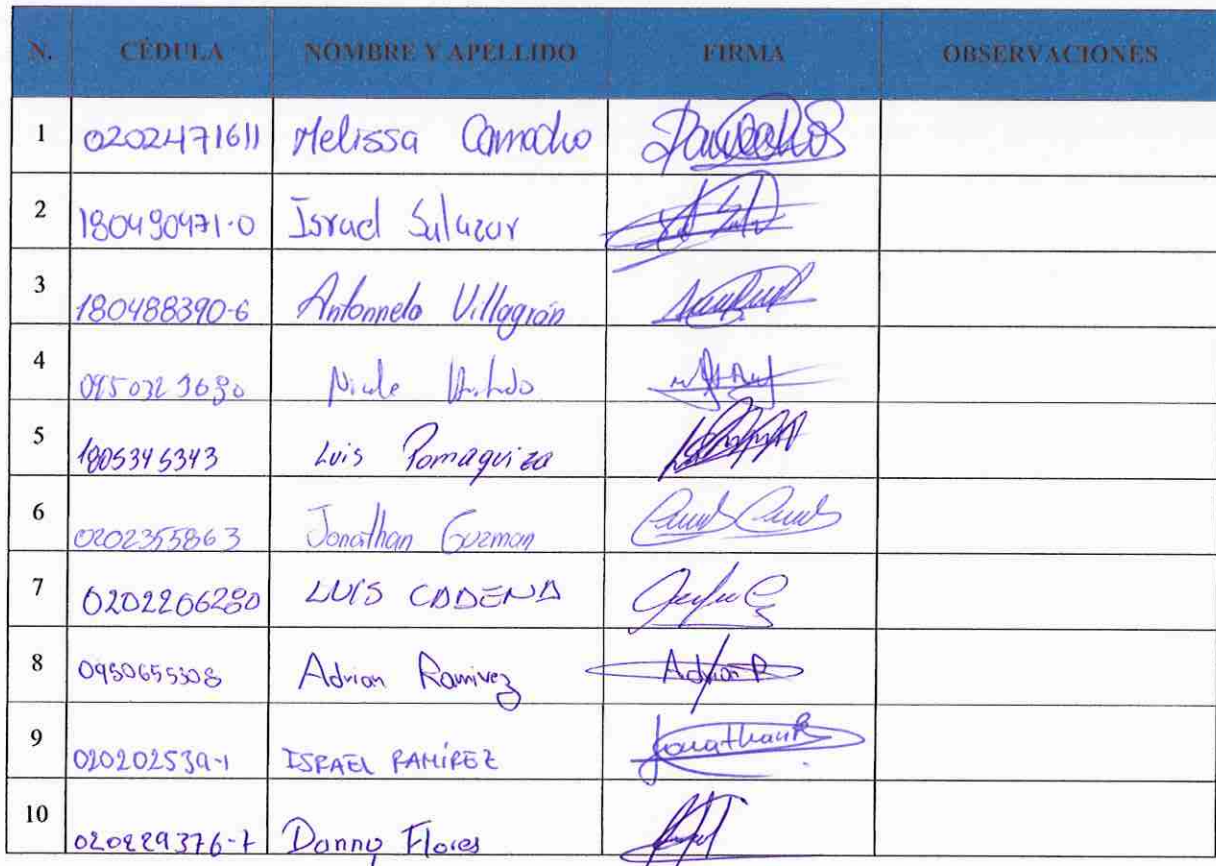 N. CÉDULA NOMBRE Y APELLIDO FIRMA OBSERVACIONES
1 0202471611 Melissa Camacho
2 180490471-0 Israel Salazar
3 180488390-6 Antonnela Villagrán
4 Nicole
5 1805345343 Luis Pomaquiza
6 0202355863 Jonathan Guzman
7 0202206280 LUIS CADENA
8 0950655308 Adrian Ramirez Adrian R
9 020202539-1 ISRAEL RAMÍREZ Jonathan R
10 020229376-7 Danny Flores